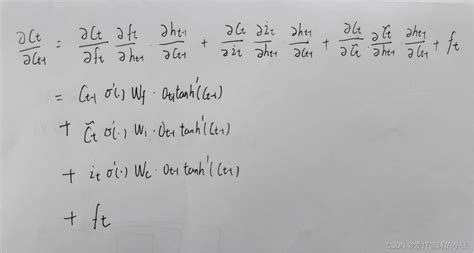 ∂Ct/∂Ct-1 = ∂Ct/∂ft ∂ft/∂ht-1 · ∂ht-1/∂Ct-1 + ∂Ct/∂it ∂it/∂ht-1 · ∂ht-1/∂Ct-1 + ∂Ct/∂C̃t · ∂C̃t/∂ht-1 ∂ht-1/∂Ct-1 + ft
= Ct-1 σ'(·) Wf · Ot-1 tanh'(Ct-1)
+ C̃t σ'(·) Wi · Ot-1 tanh'(Ct-1)
+ it σ'(·) Wc · Ot-1 tanh'(Ct-1)
+ ft